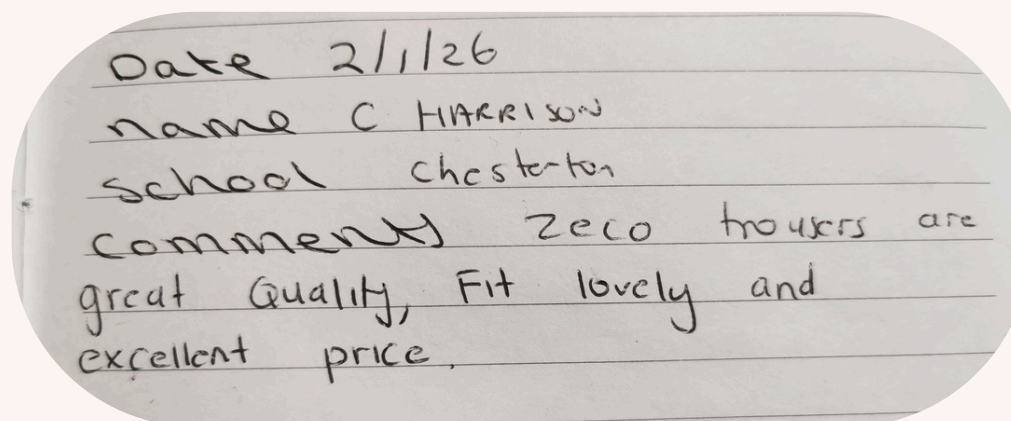 Date 2/1/26
name C HARRISON
school Chesterton
comments Zeco trousers are
great Quality, Fit lovely and
excellent price.